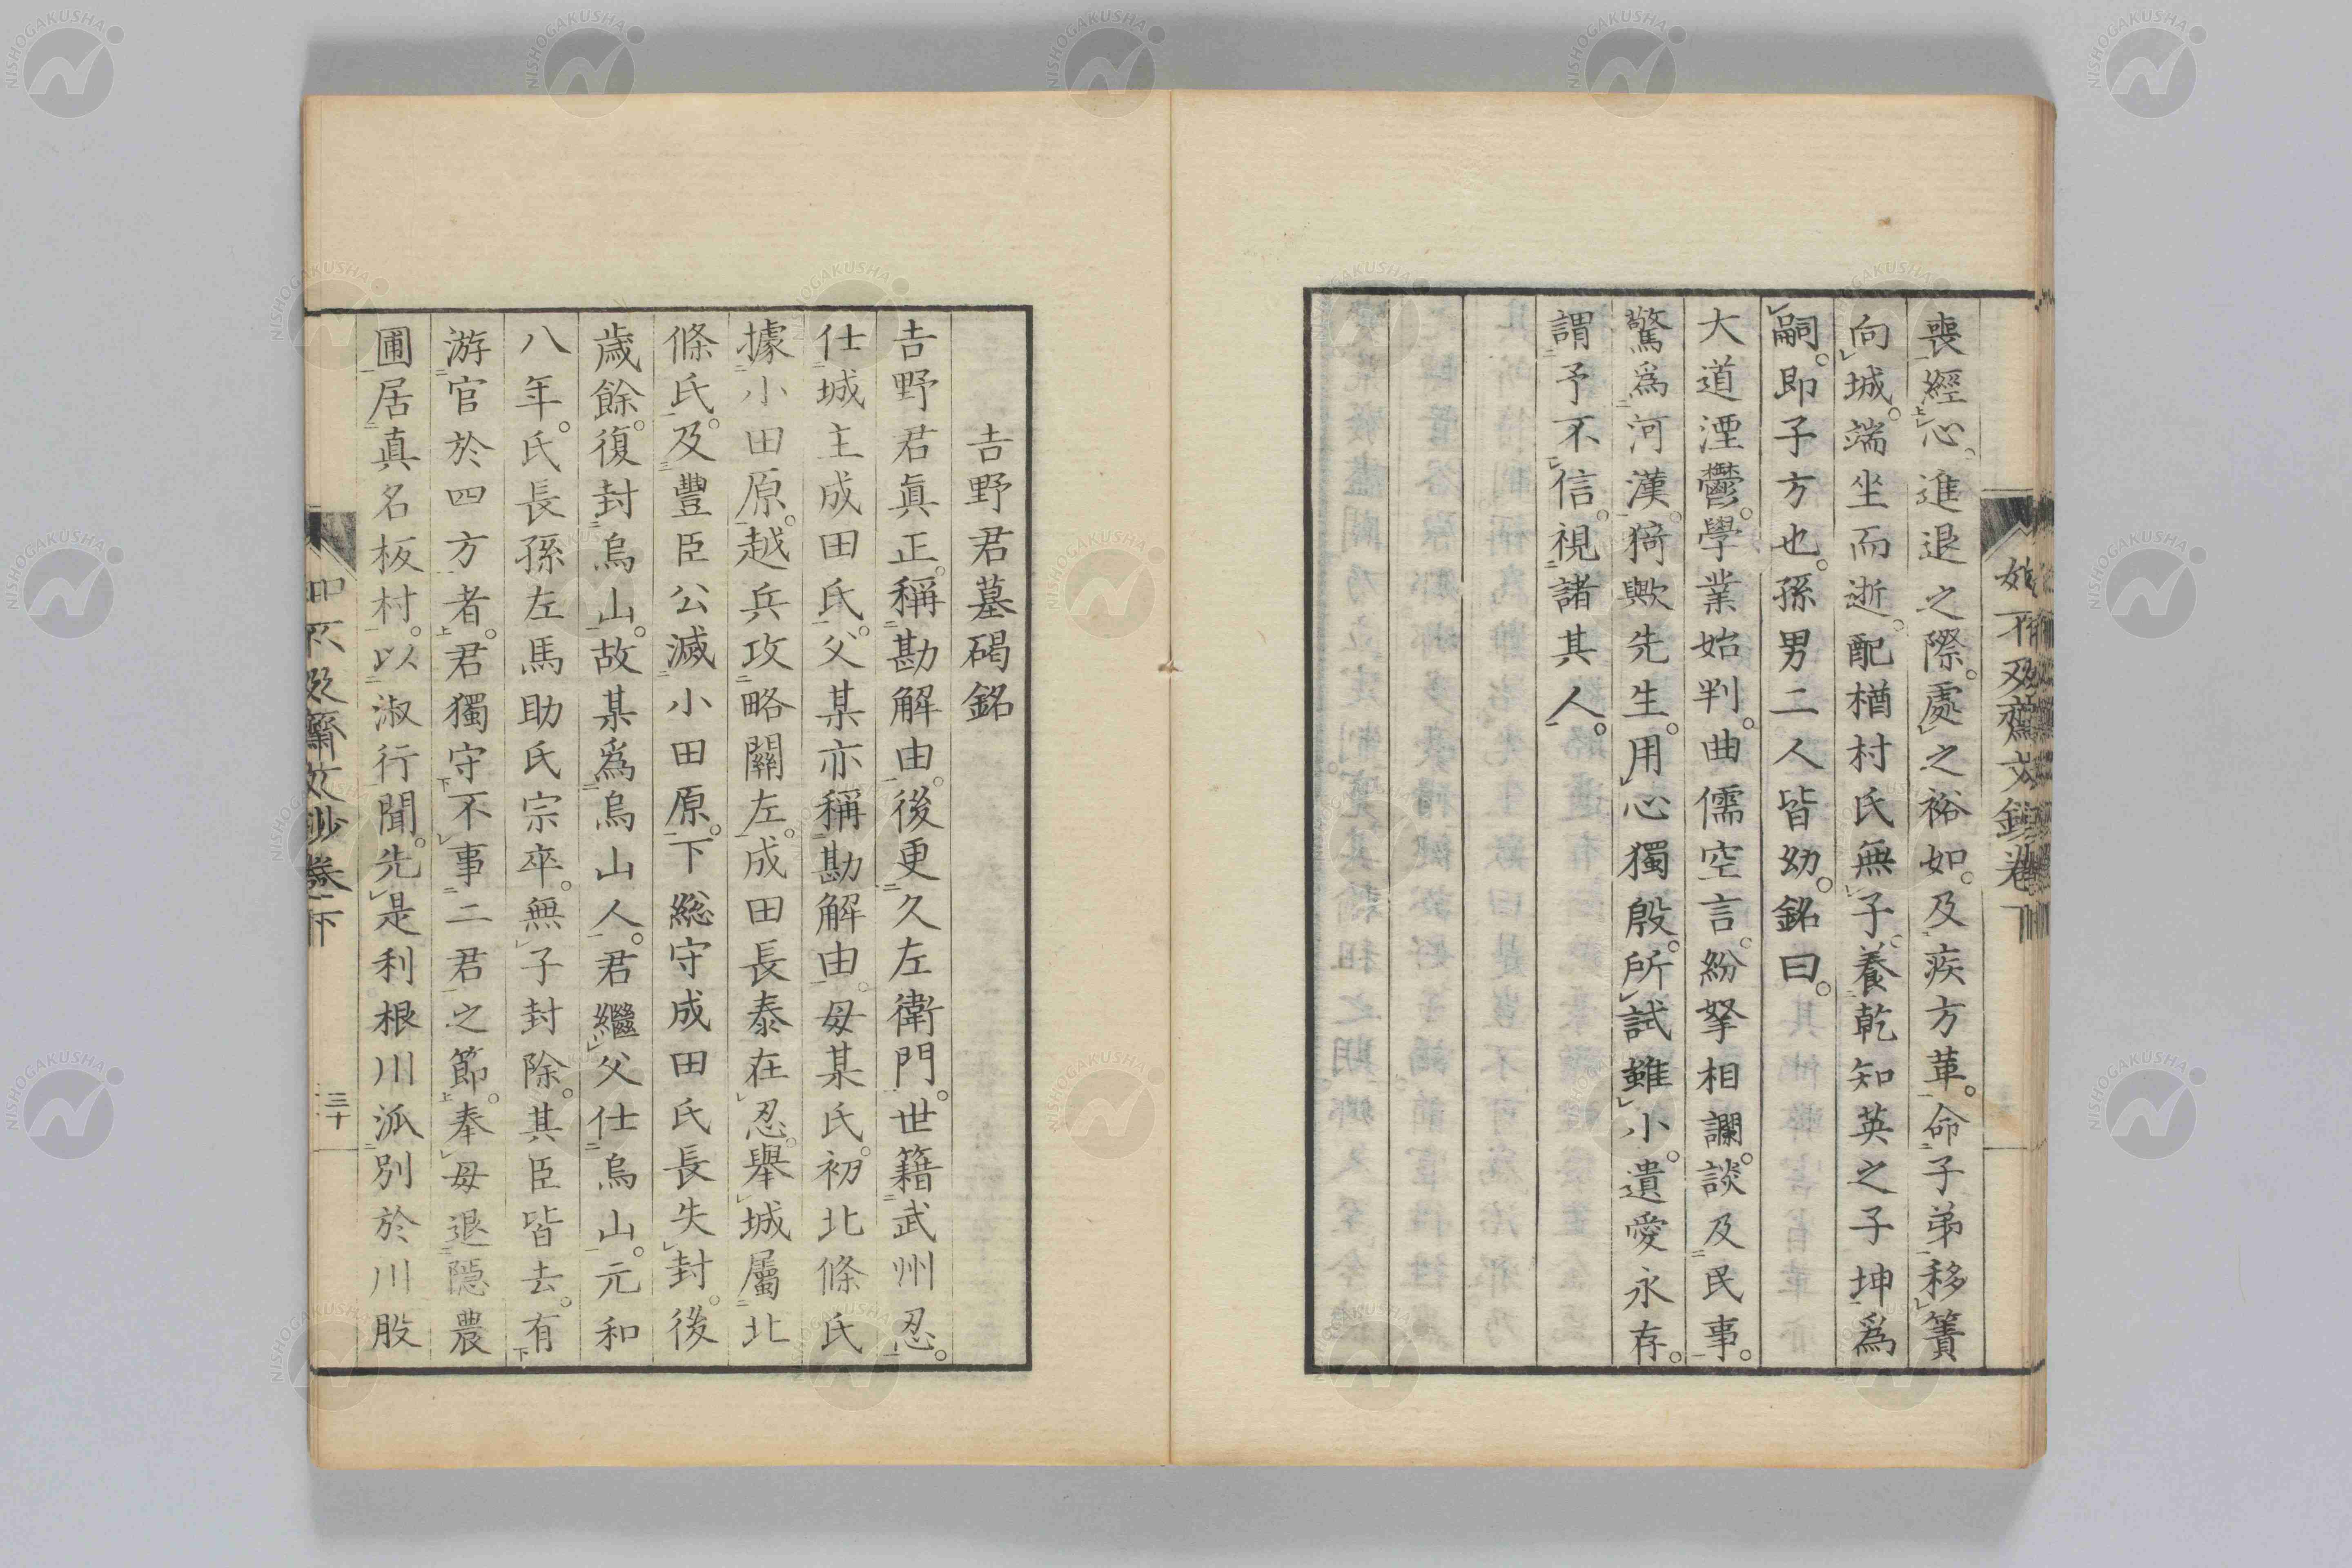 喪經心進退之際。處之裕如。及疾方革。命子弟移簀
向城。端坐而逝。配楢村氏無子。養乾知英之子坤爲
嗣。即子方也。孫男二人皆幼。銘曰。
大道湮鬱。學業始判。曲儒空言。紛拏相讕。談及民事。
驚爲河漢。猗歟先生。用心獨殷。所試雖小。遺愛永存。
謂予不信。視諸其人。
吉野君墓碣銘
吉野君眞正。稱勘解由。後更久左衛門。世籍武州忍。
仕城主成田氏。父某亦稱勘解由。母某氏。初北條氏
據小田原。越兵攻略關左。成田長泰在忍。舉城屬北
條氏。及豐臣公滅小田原。下總守成田氏長失封。後
歲餘。復封烏山。故某爲烏山人。君繼父仕烏山。元和
八年。氏長孫左馬助氏宗卒。無子封除。其臣皆去。有
游官於四方者。君獨守不事二君之節。奉母退隱農
圃居真名板村。以淑行聞。先是利根川派別於川股
三十